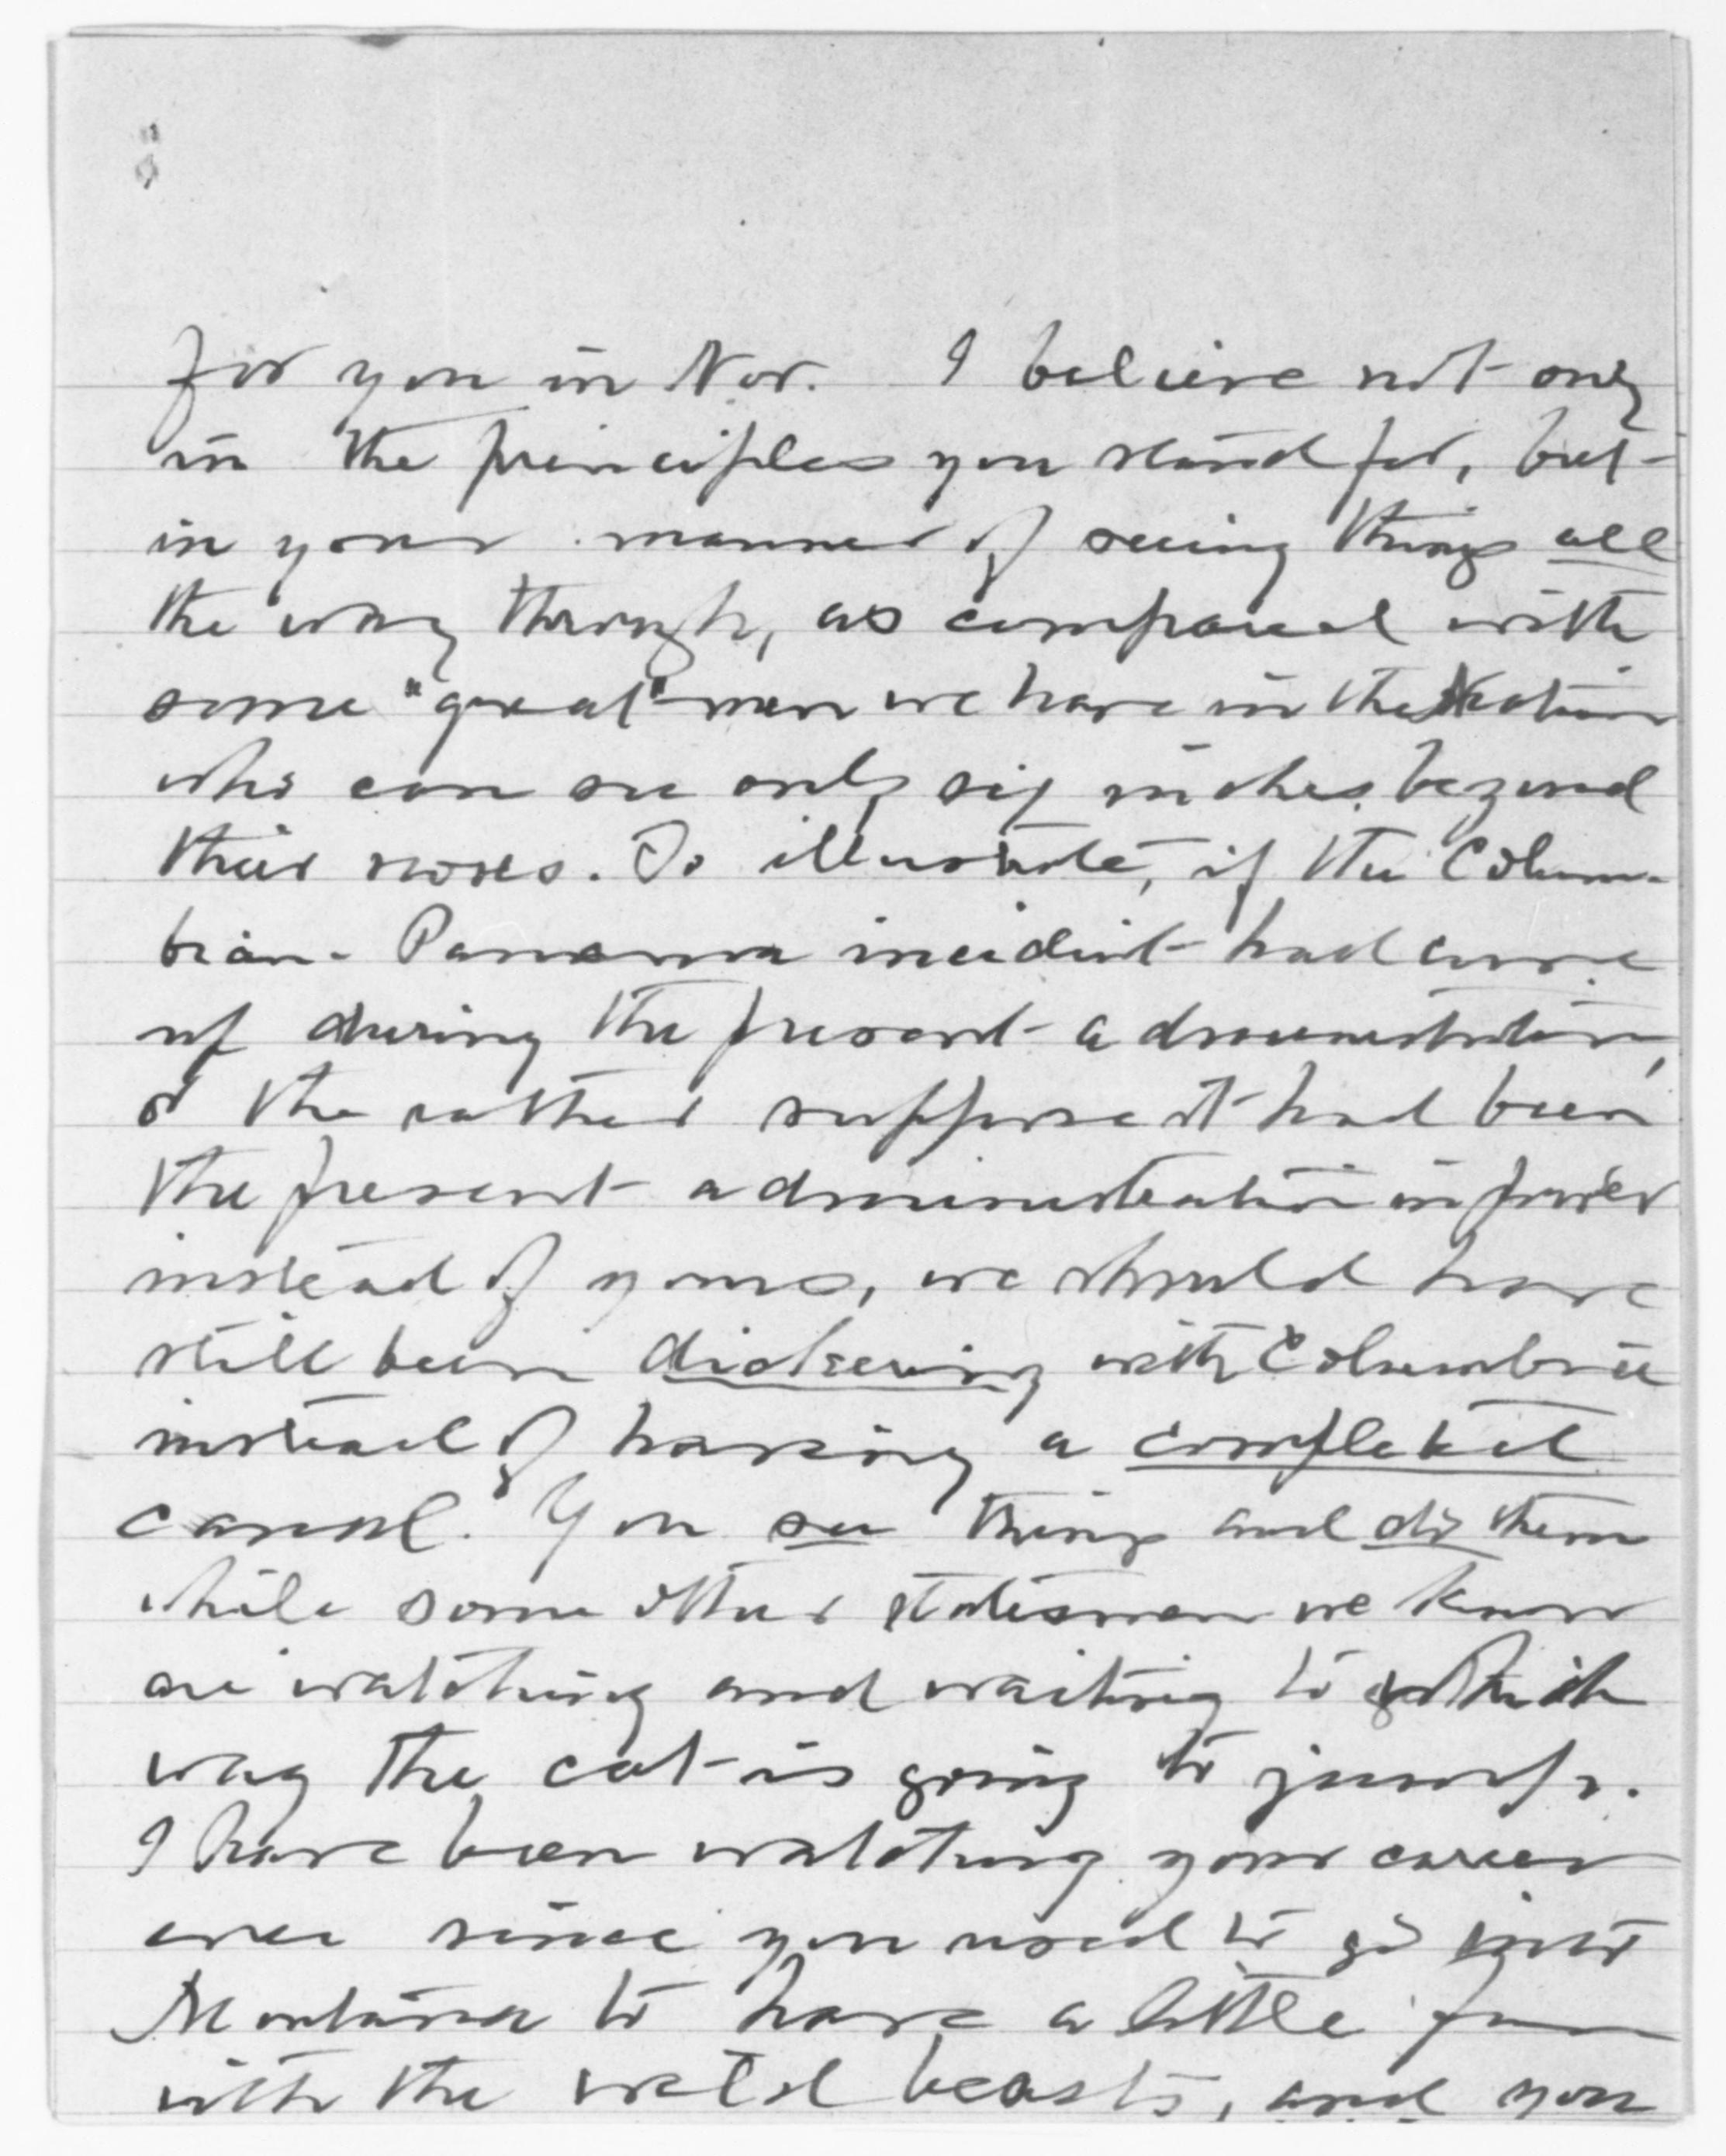 for you in Nov. I believe not only
in the principles you stand for, but
in your manner of seeing things all
the way through, as compared with
some "great" men we have in the Nation
who can see only six inches beyond
their noses. To illustrate, if the Colum-
bian-Panama incident had come
up during the present administration,
or the rather suppose it had been
the present administration in power
instead of yours, we should have
still been dickering with Columbia
instead of having a completed
canal. You see things and do them
while some other statesmen we know
are watching and waiting to which
way the cat is going to jump.
I have been watching your career
ever since you used to go into
Montana to have a little fun
with the wild beasts, and you